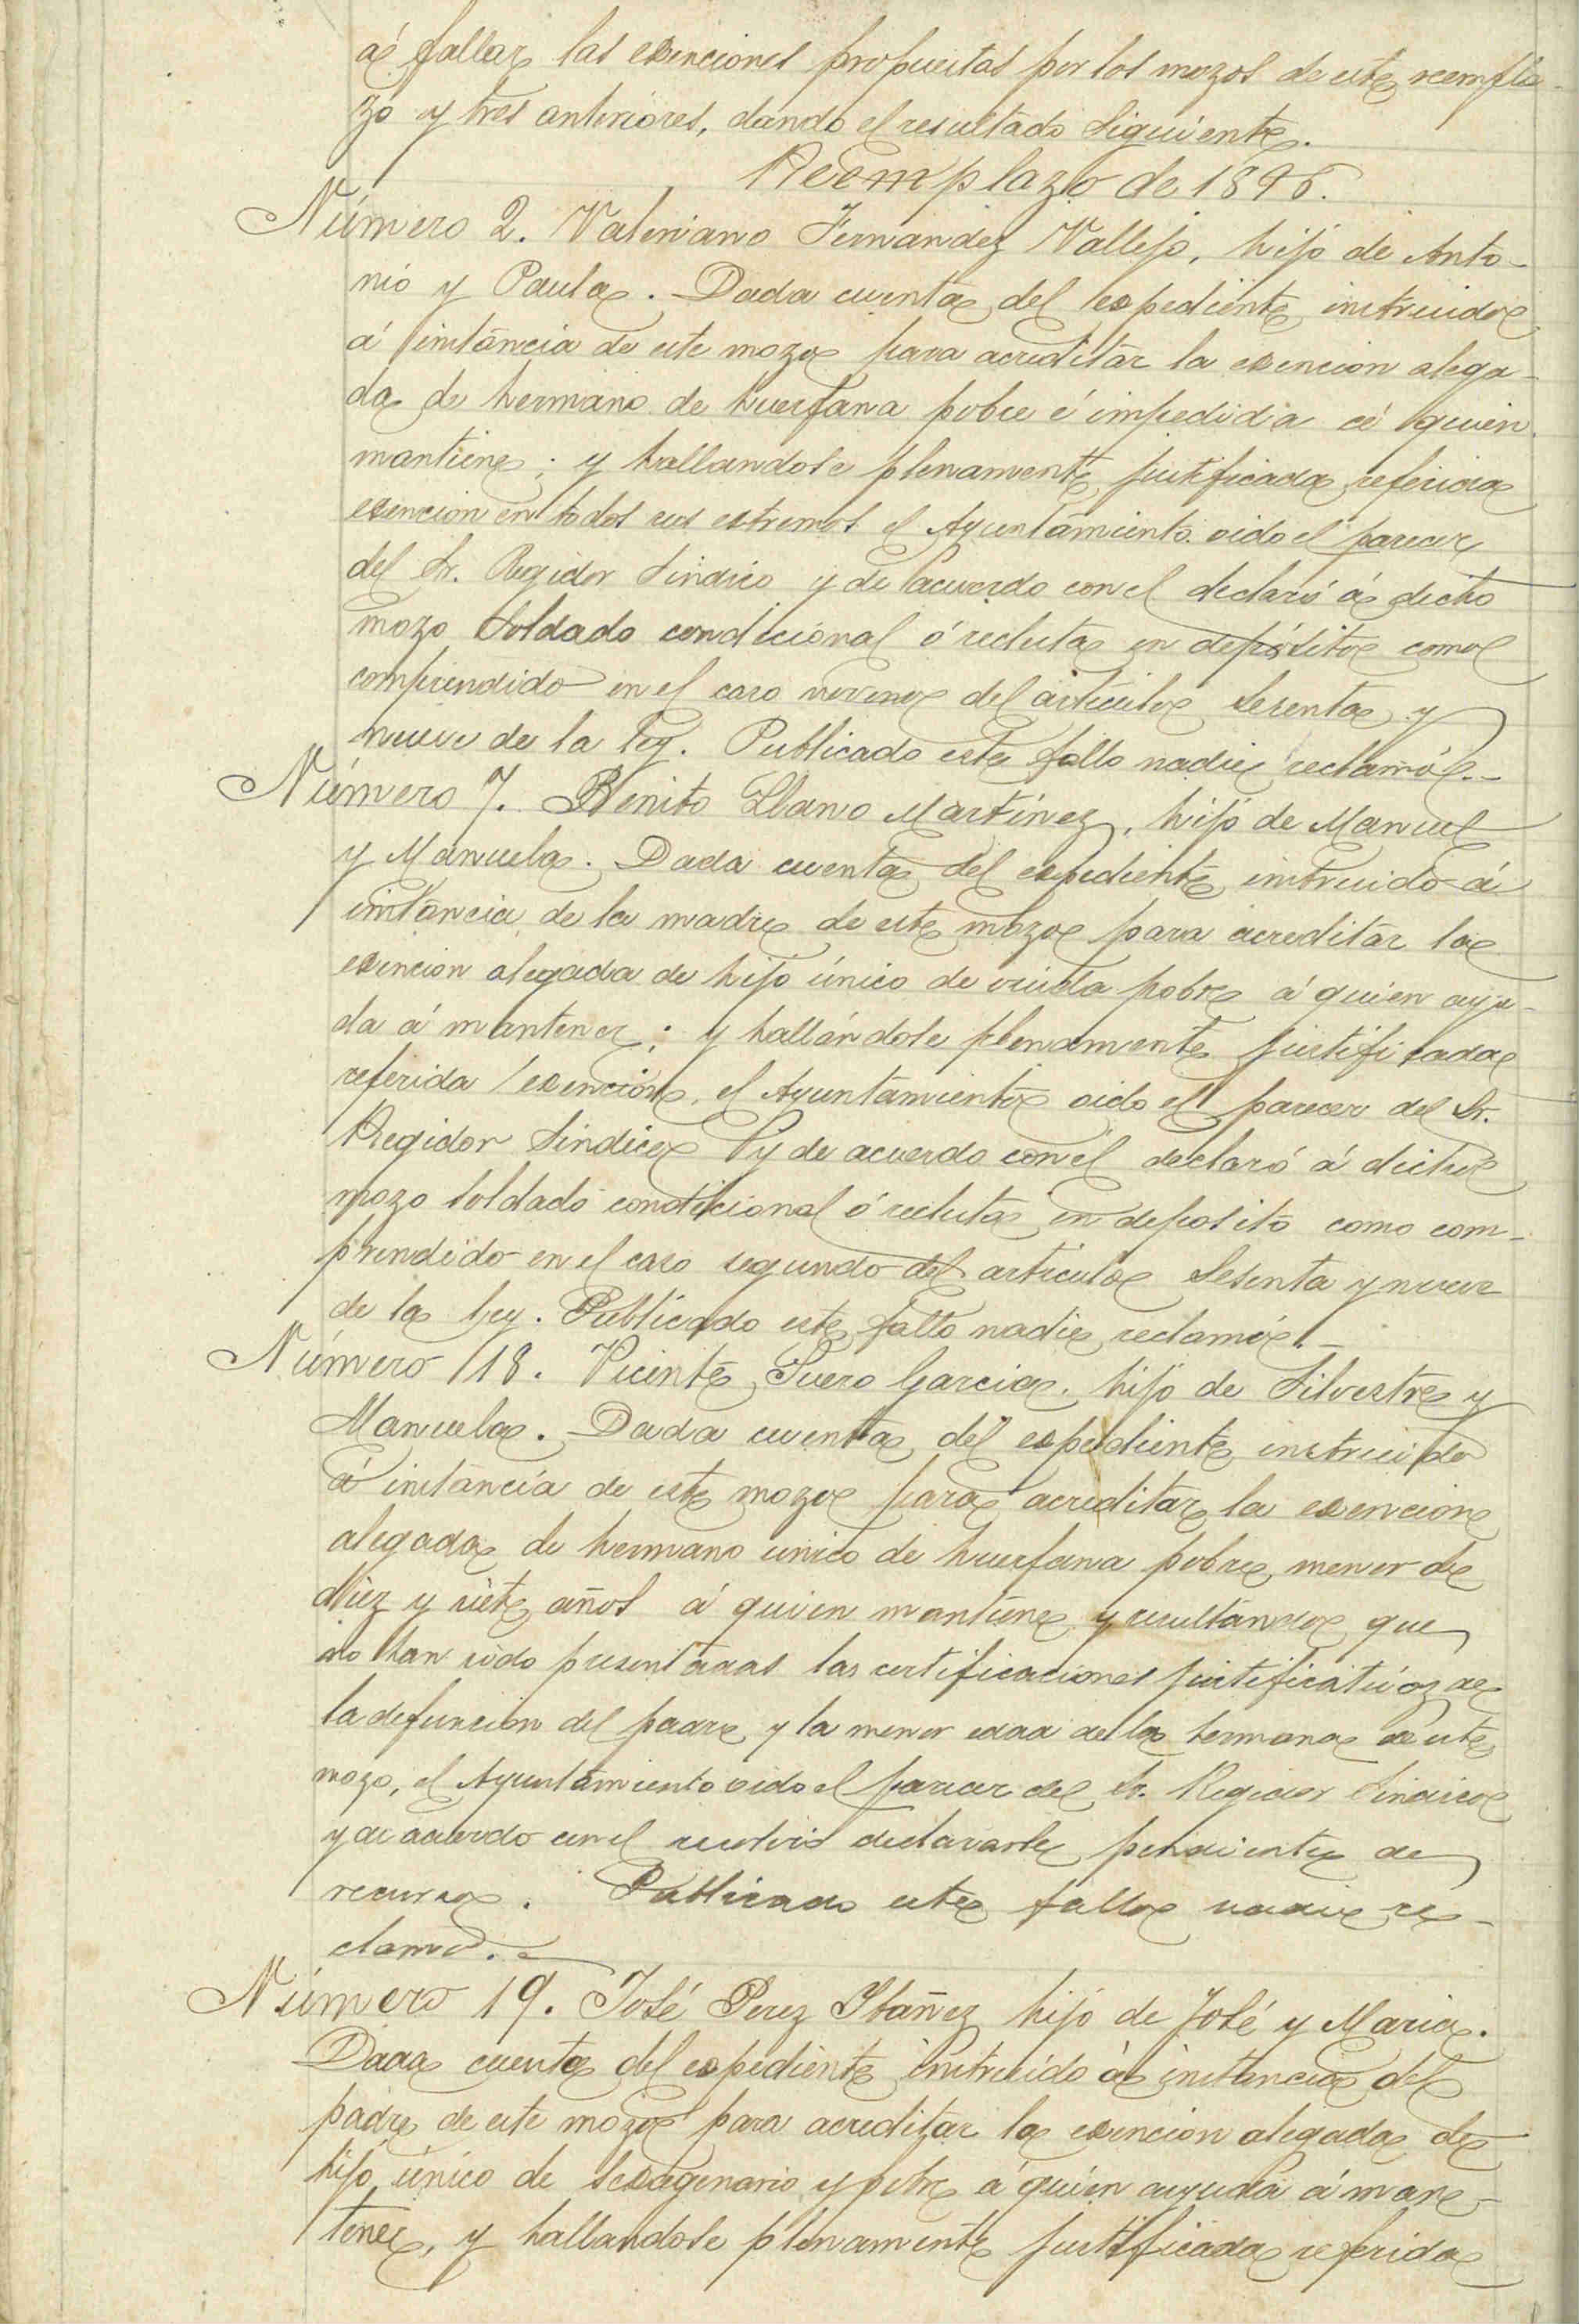 á fallar las exenciones propuestas por los mozos de este reempla-
zo y tres anteriores, dando el resultado siguiente.
Reemplazo de 1896.
Número 2. Valeriano Fernandez Vallejo, hijo de Anto-
nio y Paula. Dada cuenta del expediente instruido
á instáncia de este mozo para acreditar la exencion alega-
da de hermano de huerfana pobre é impedida á quien
mantiene; y hallandose plenamente justificada referida
exencion en todos sus estremos el Ayuntamiento oido el parecer
del Sr. Regidor Sindico y de acuerdo con el declaró á dicho
mozo soldado condicional ó recluta en depósito como
comprendido en el caso noveno del articulo sesenta y
nueve de la ley. Publicado este fallo nadie reclamó.-
Número 7. Benito Llano Martínez, hijo de Manuel
y Manuela. Dada cuenta del expediente instruido á
instáncia de la madre de este mozo para acreditar la
exencion alegada de hijo único de viuda pobre á quien ayu-
da á mantener; y hallándose plenamente justificada
referida exención, el Ayuntamiento oido el parecer del Sr.
Regidor Sindico y de acuerdo con él declaró á dicho
mozo soldado condicional ó recluta en deposito como com-
prendido en el caso segundo del articulo sesenta y nueve
de la ley. Publicado este fallo nadie reclamó.-
Número 18. Vicente Suero Garcia, hijo de Silvestre y
Manuela. Dada cuenta del expediente instruido
á instáncia de este mozo para acreditar la exencion
alegada de hermano unico de huerfana pobre menor de
diez y siete años á quien mantiene y resultando que
no han sido presentadas las certificaciones justificativas de
la defuncion del padre y la menor edad de la hermana de este
mozo, el Ayuntamiento oido el parecer del Sr. Regidor Sindico
y de acuerdo con el resolvió declararle pendiente de
recurso. Publicado este fallo nadie re-
clamó.-
Número 19. José Perez Ibáñez hijo de José y Maria.
Dada cuenta del expediente instruido á instancia del
padre de este mozo para acreditar la exencion alegada de
hijo único de sexagenario y pobre á quien ayuda á man-
tener, y hallandose plenamente justificada referida